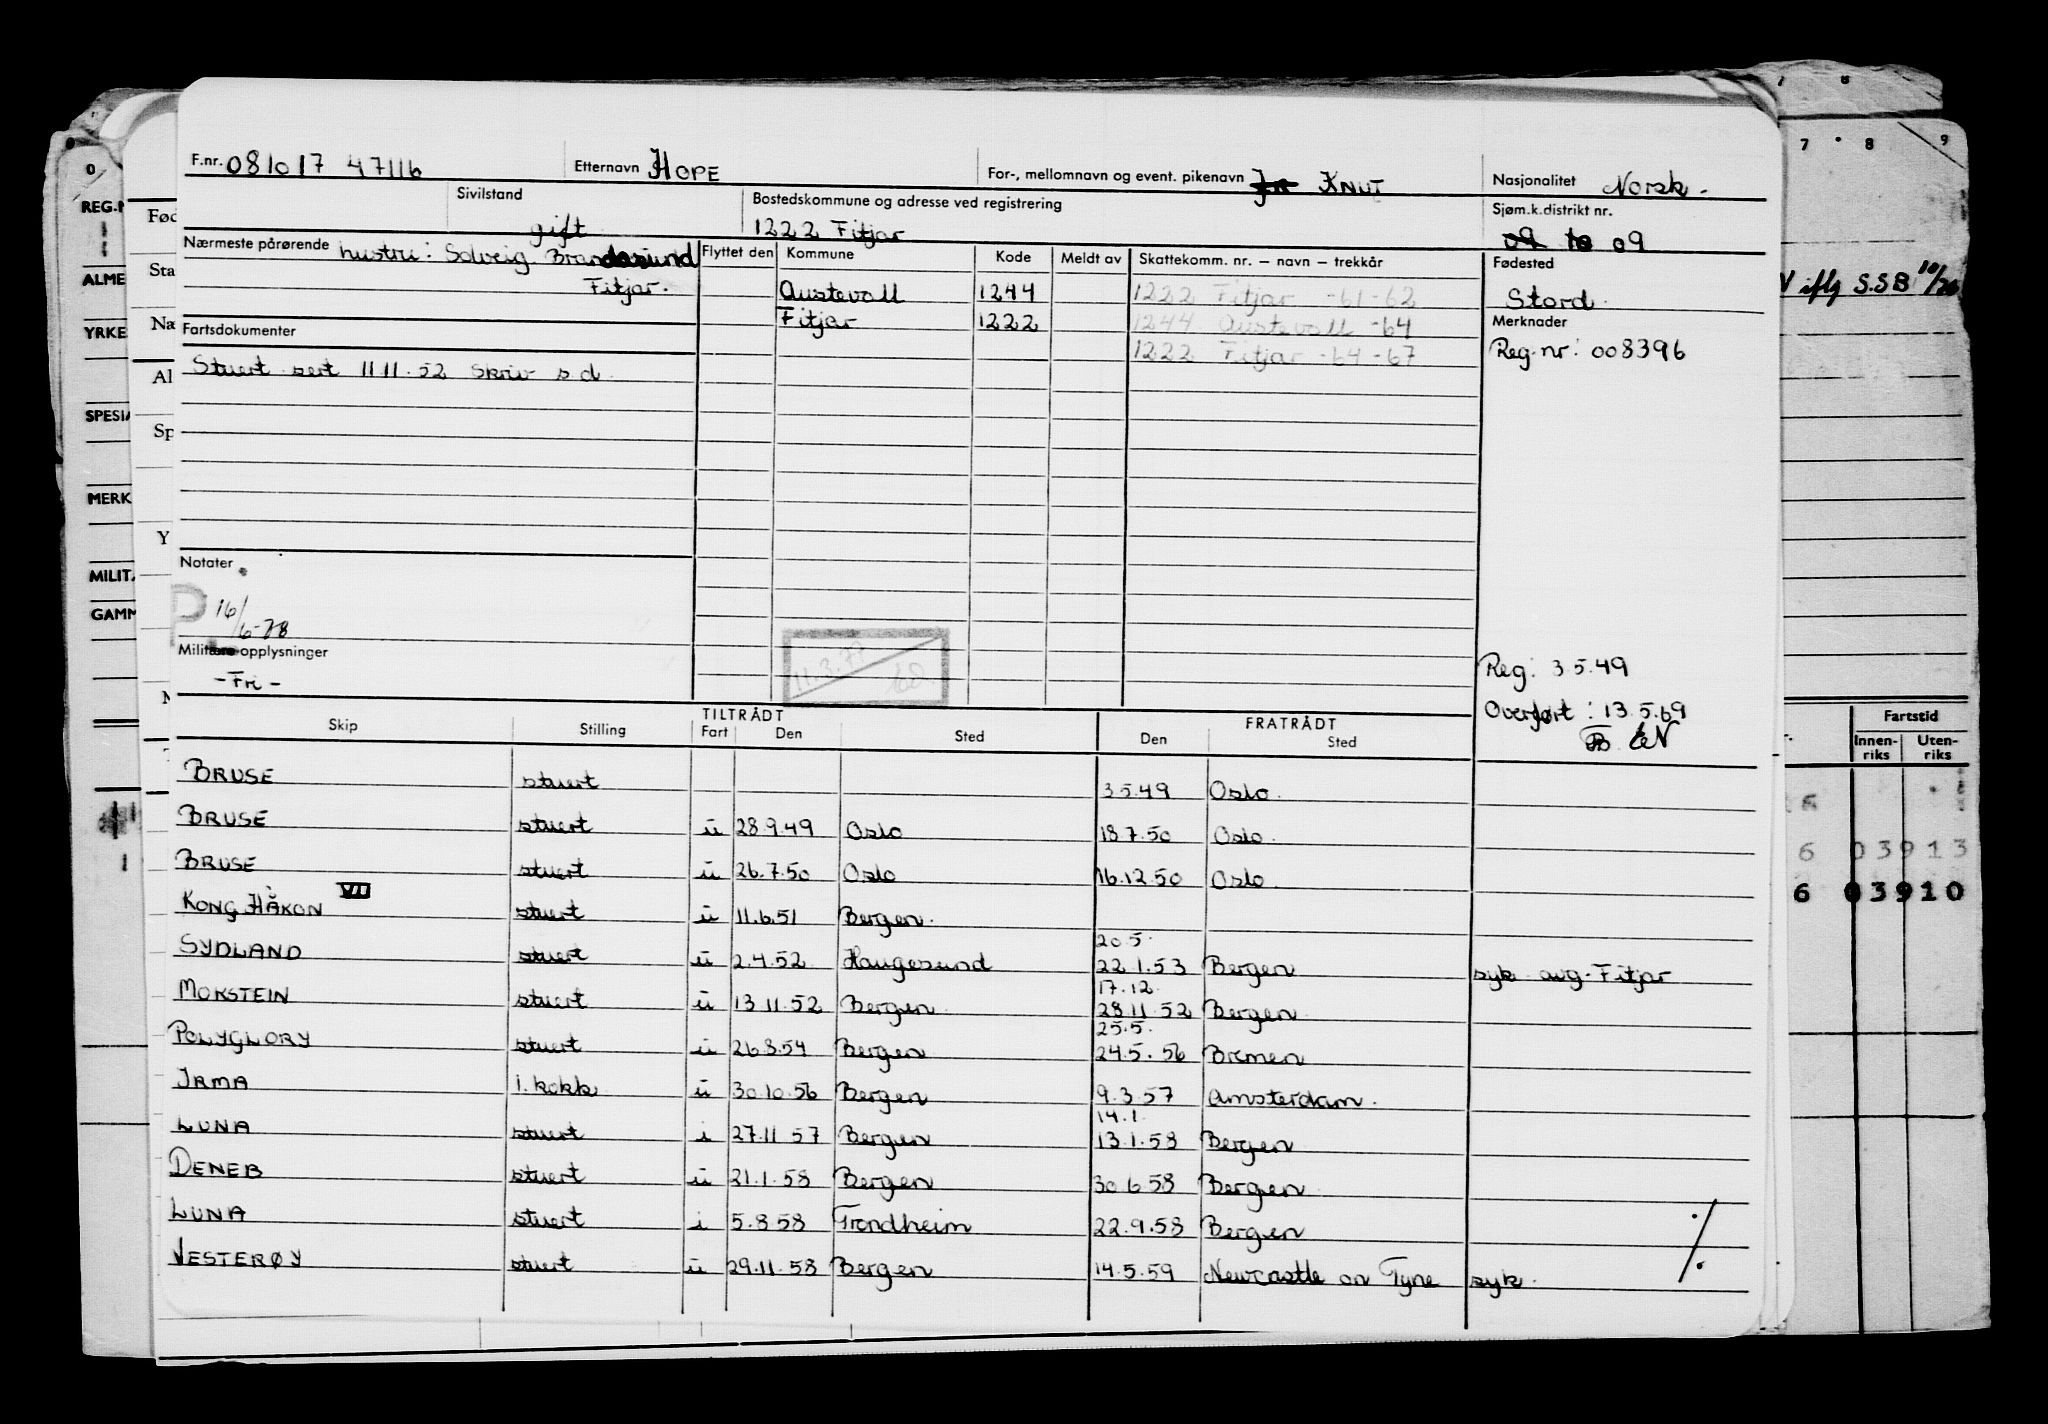 F.nr. 081017 47116 Etternavn HOPE For-, mellomnavn og event. pikenavn KNUT Nasjonalitet Norsk.
Sivilstand gift Bostedskommune og adresse ved registrering 1222 Fitjar Sjøm.k.distrikt nr. 09 10 09
Nærmeste pårørende hustru: Solveig. Brandasund Flyttet den Kommune Kode Meldt av Skattekomm. nr. – navn – trekkår Fødested
Fitjar. Austevoll 1244 1222 Fitjar -61-62 Stord
Fitjar 1222 1244 Austevoll -64 Merknader
Fartsdokumenter 1222 Fitjar -64-67 Reg.nr: 008396
Stuert sert 11 11.52 Skriv s d.
Notater
16/6-78
Militære opplysninger
-Fri-
11.3.77
Reg: 3 5.49
Overført: 13.5.69
EN
Skip Stilling TILTRÅDT Fart Den Sted FRATRÅDT Den Sted
BRUSE stuert 3 5.49 Oslo.
BRUSE stuert u 28.9.49 Oslo 18.7.50 Oslo.
BRUSE stuert u 26.7.50 Oslo 16.12.50 Oslo.
KONG HÅKON VII stuert u 11.6.51 Bergen.
20.5.
SYDLAND stuert u 2.4.52 Haugesund 22.1.53 Bergen syk avg-Fitjar
17.12.
MOKSTEIN stuert u 13.11.52 Bergen 28.11.52 Bergen
25.5.
POLYGLORY stuert u 26.8.54 Bergen 24.5.56 Bremen
IRMA 1. kokk u 30.10.56 Bergen 9.3.57 Amsterdam.
14.1.
LUNA stuert i 27.11 57 Bergen 13.1.58 Bergen
DENEB stuert u 21.1.58 Bergen 30 6.58 Bergen
LUNA stuert i 5.8.58 Trondheim 22.9.58 Bergen
VESTERØY stuert u 29.11.58 Bergen 14.5.59 Newcastle on Tyne syk.
0
REG.N
ALME
YRKE
SPESIA
MERK
MILIT
GAMM
Fød
Sta
Næ
Al
Sp
Y
7 8 9
iflg S.S.B
Fartstid
Innen-riks Uten-riks
6 03913
6 03910